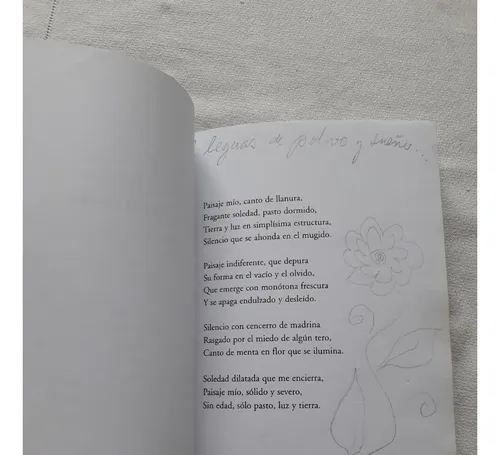 leguas de polvo y sueño...
Paisaje mío, canto de llanura,
Fragante soledad, pasto dormido,
Tierra y luz en simplísima estructura,
Silencio que se ahonda en el mugido.
Paisaje indiferente, que depura
Su forma en el vacío y el olvido,
Que emerge con monótona frescura
Y se apaga endulzado y desleído.
Silencio con cencerro de madrina
Rasgado por el miedo de algún tero,
Canto de menta en flor que se ilumina.
Soledad dilatada que me encierra,
Paisaje mío, sólido y severo,
Sin edad, sólo pasto, luz y tierra.